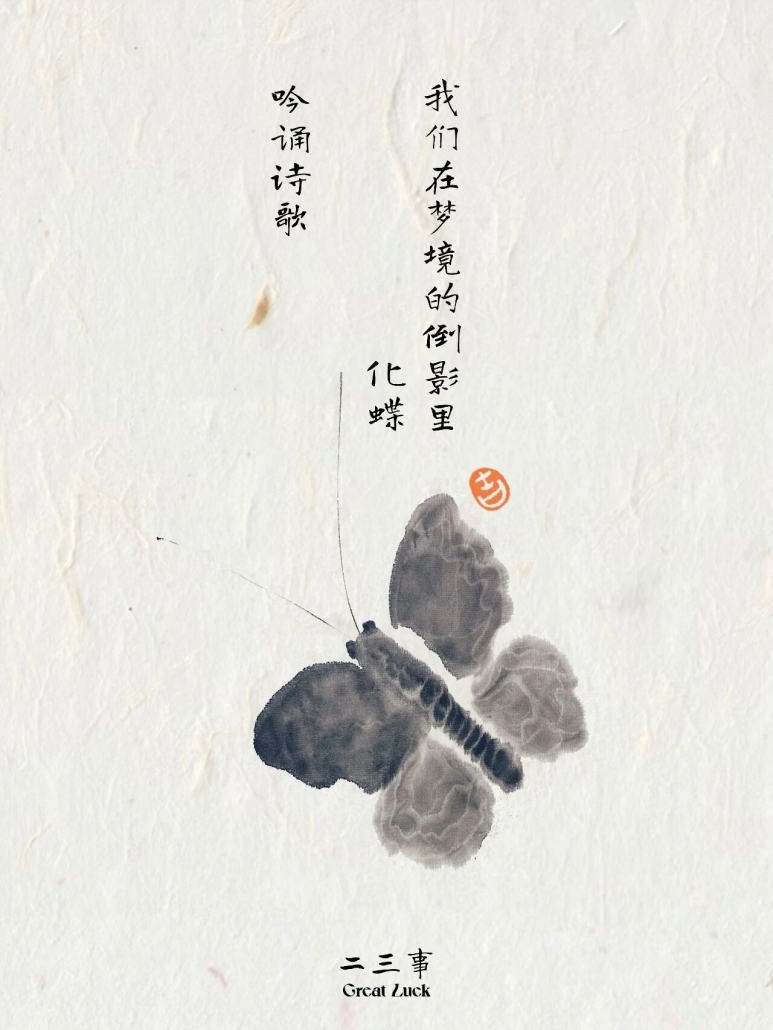 我们在梦境的倒影里
化蝶
吟诵诗歌
二三事
Great Luck